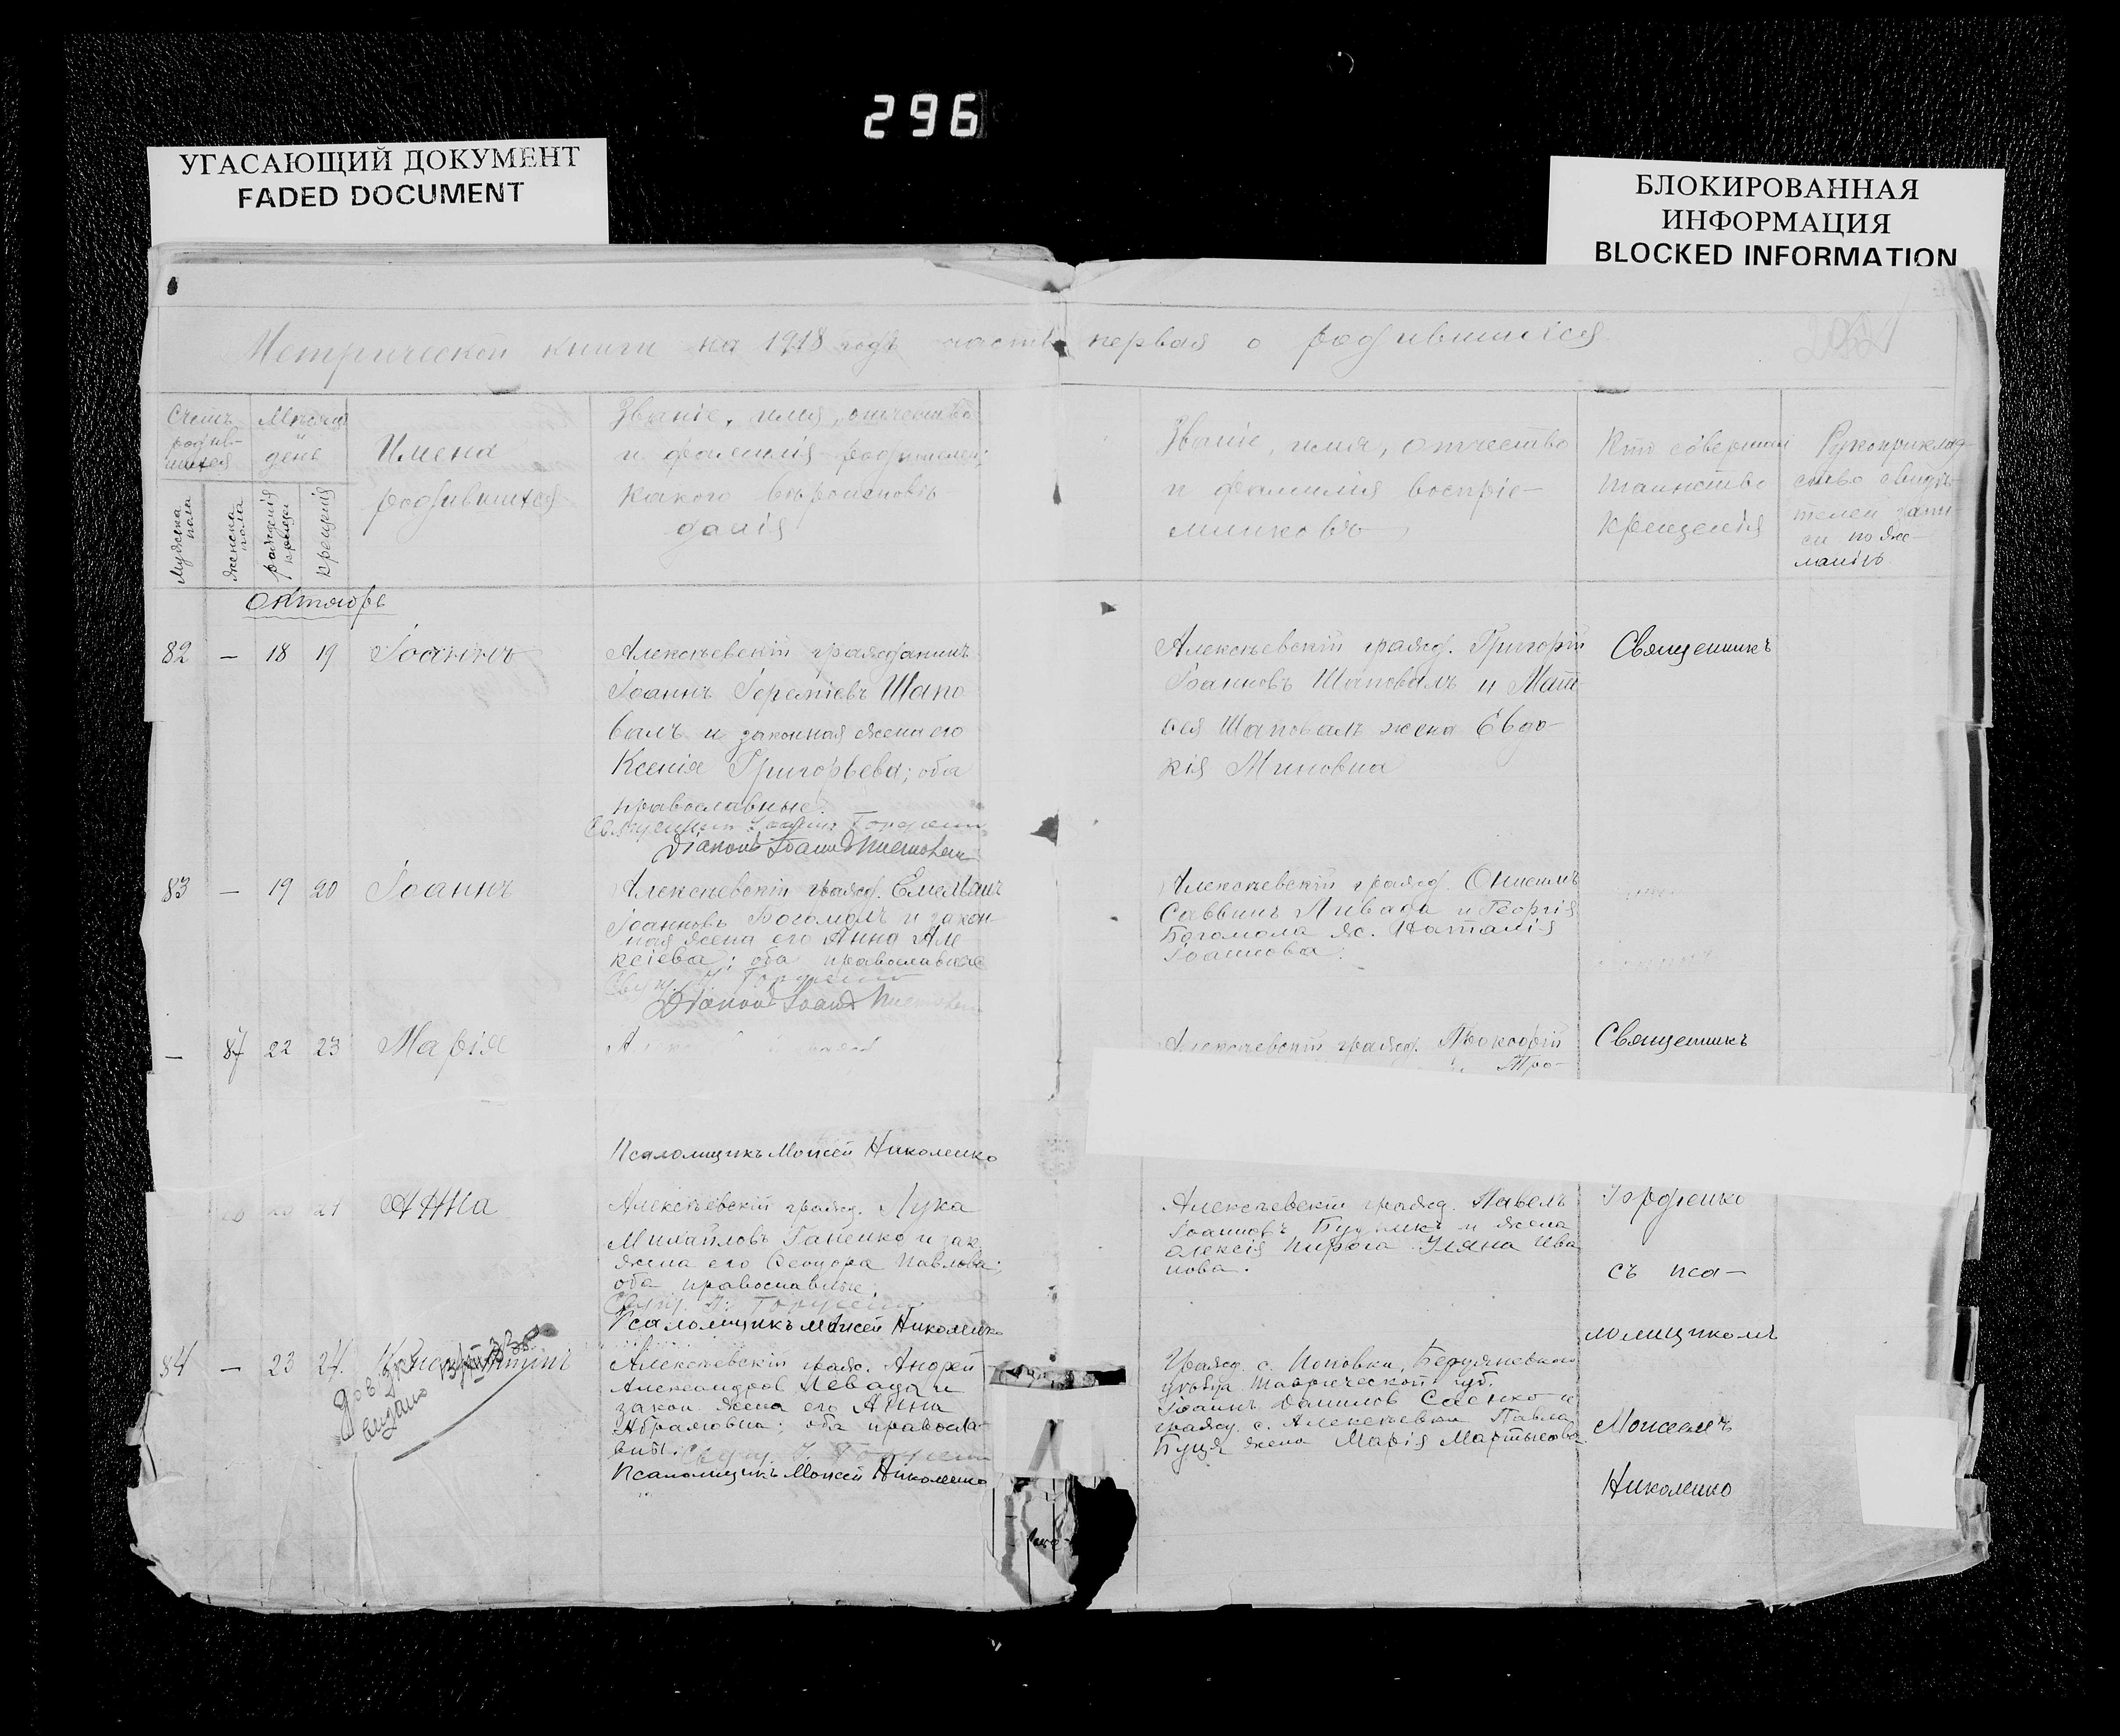 296
УГАСАЮЩИЙ ДОКУМЕНТ
FADED DOCUMENT
БЛОКИРОВАННАЯ
ИНФОРМАЦИЯ
BLOCKED INFORMATION
Метрической книги на 1918 годъ часть первая о родившихся
Счетъ родив-шихся
Мѣсяцъ и день
Имена
родившихся
Званіе, имя, отчество
и фамилія родителей,
какого вѣроисповѣ-
данія
Званіе, имя, отчество
и фамилія воспріе-
мниковъ
Кто совершалъ
таинство
крещенія
Рукоприклад-
ство свидѣ-
телей запи-
си по же-
ланію
Мужска пола
женска пола
рожденія
крещенія
Октябрь
82 — 18 19 Іоаннъ
Алексѣевскій гражданинъ
Іоаннъ Іереміевъ Шапо
валъ и законная жена его
Ксенія Григорьева; оба
православные.
Діаконъ Іоаннъ
Алексѣевскій гражд. Григорій
Іоанновъ Шаповалъ и Мат-
ѳея Шаповалъ жена Евдо-
кія Миновна
Священникъ
83 — 19 20 Іоаннъ
Алексѣевскій гражд. Емельянъ
Іоанновъ Богомолъ и закон-
ная жена его Анна Але
ксіева; оба православные
Свящ. І. Гордіенко
Діаконъ Іоаннъ
Алексѣевскій гражд. Онисимъ
Саввинъ Ливада и Георгія
Богомола ж. Наталія
Іоаннова.
— 87 22 23 Марія
Алексѣевскій гражд. Прокофій
и Тро-
Священникъ
Псаломщикъ Моисей Николенко
Анна
Алексѣевскій гражд. Лука
Михайловъ Ганенко и зак.
жена его Ѳеодора Павлова;
оба православные;
Свящ. І. Гордіенко
Псаломщикъ Моисей Николенко
Алексѣевскій гражд. Павелъ
Іоанновъ Будникъ и жена
Алексія Пирога Уляна Ива
нова.
Гордіенко
съ пса-
ломщикомъ
Моисеемъ
Николенко
84 — 23 24 Константинъ
выдано
Алексѣевскій гражд. Андрей
Александров Левада и
закон. жена его Анна
Абрамовна; оба правосла-
вны. Свящ. І. Гордіенко
Псаломщикъ Моисей Николенко
Гражд. с. Поповки, Бердянскаго
уѣзда Таврической губ.
Іоаннъ Данилов Саенко и
гражд. с. Алексѣевки Павла
Буця жена Марія Мартынова